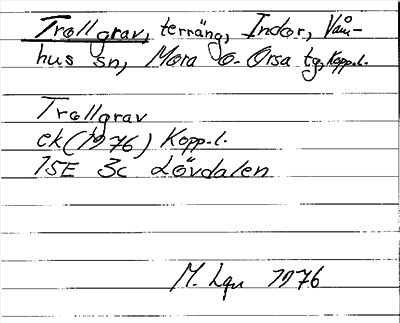 Trollgrav, terräng, Indor, Våm-
hus sn, Mora o. Orsa tg, Kopp.l.
Trollgrav
ek (1976) Kopp.l.
15E 3c Lövdalen
M. Lgn 1976